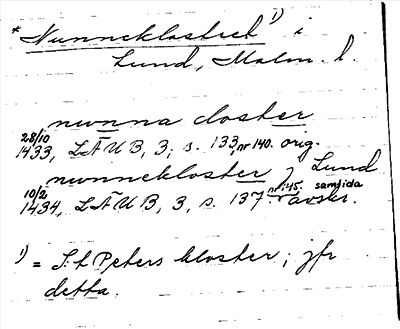 * Nunneklostret 1) i
Lund, Malm. l.
nwnna closter
28/10 1433, LÄUB, 3, s. 133, nr 140. orig.
nwnnekloster j Lund
10/2 1434, LÄUB, 3, s. 137 nr 145. samtida avskr.
1) = S:t Peters kloster; jfr
detta.